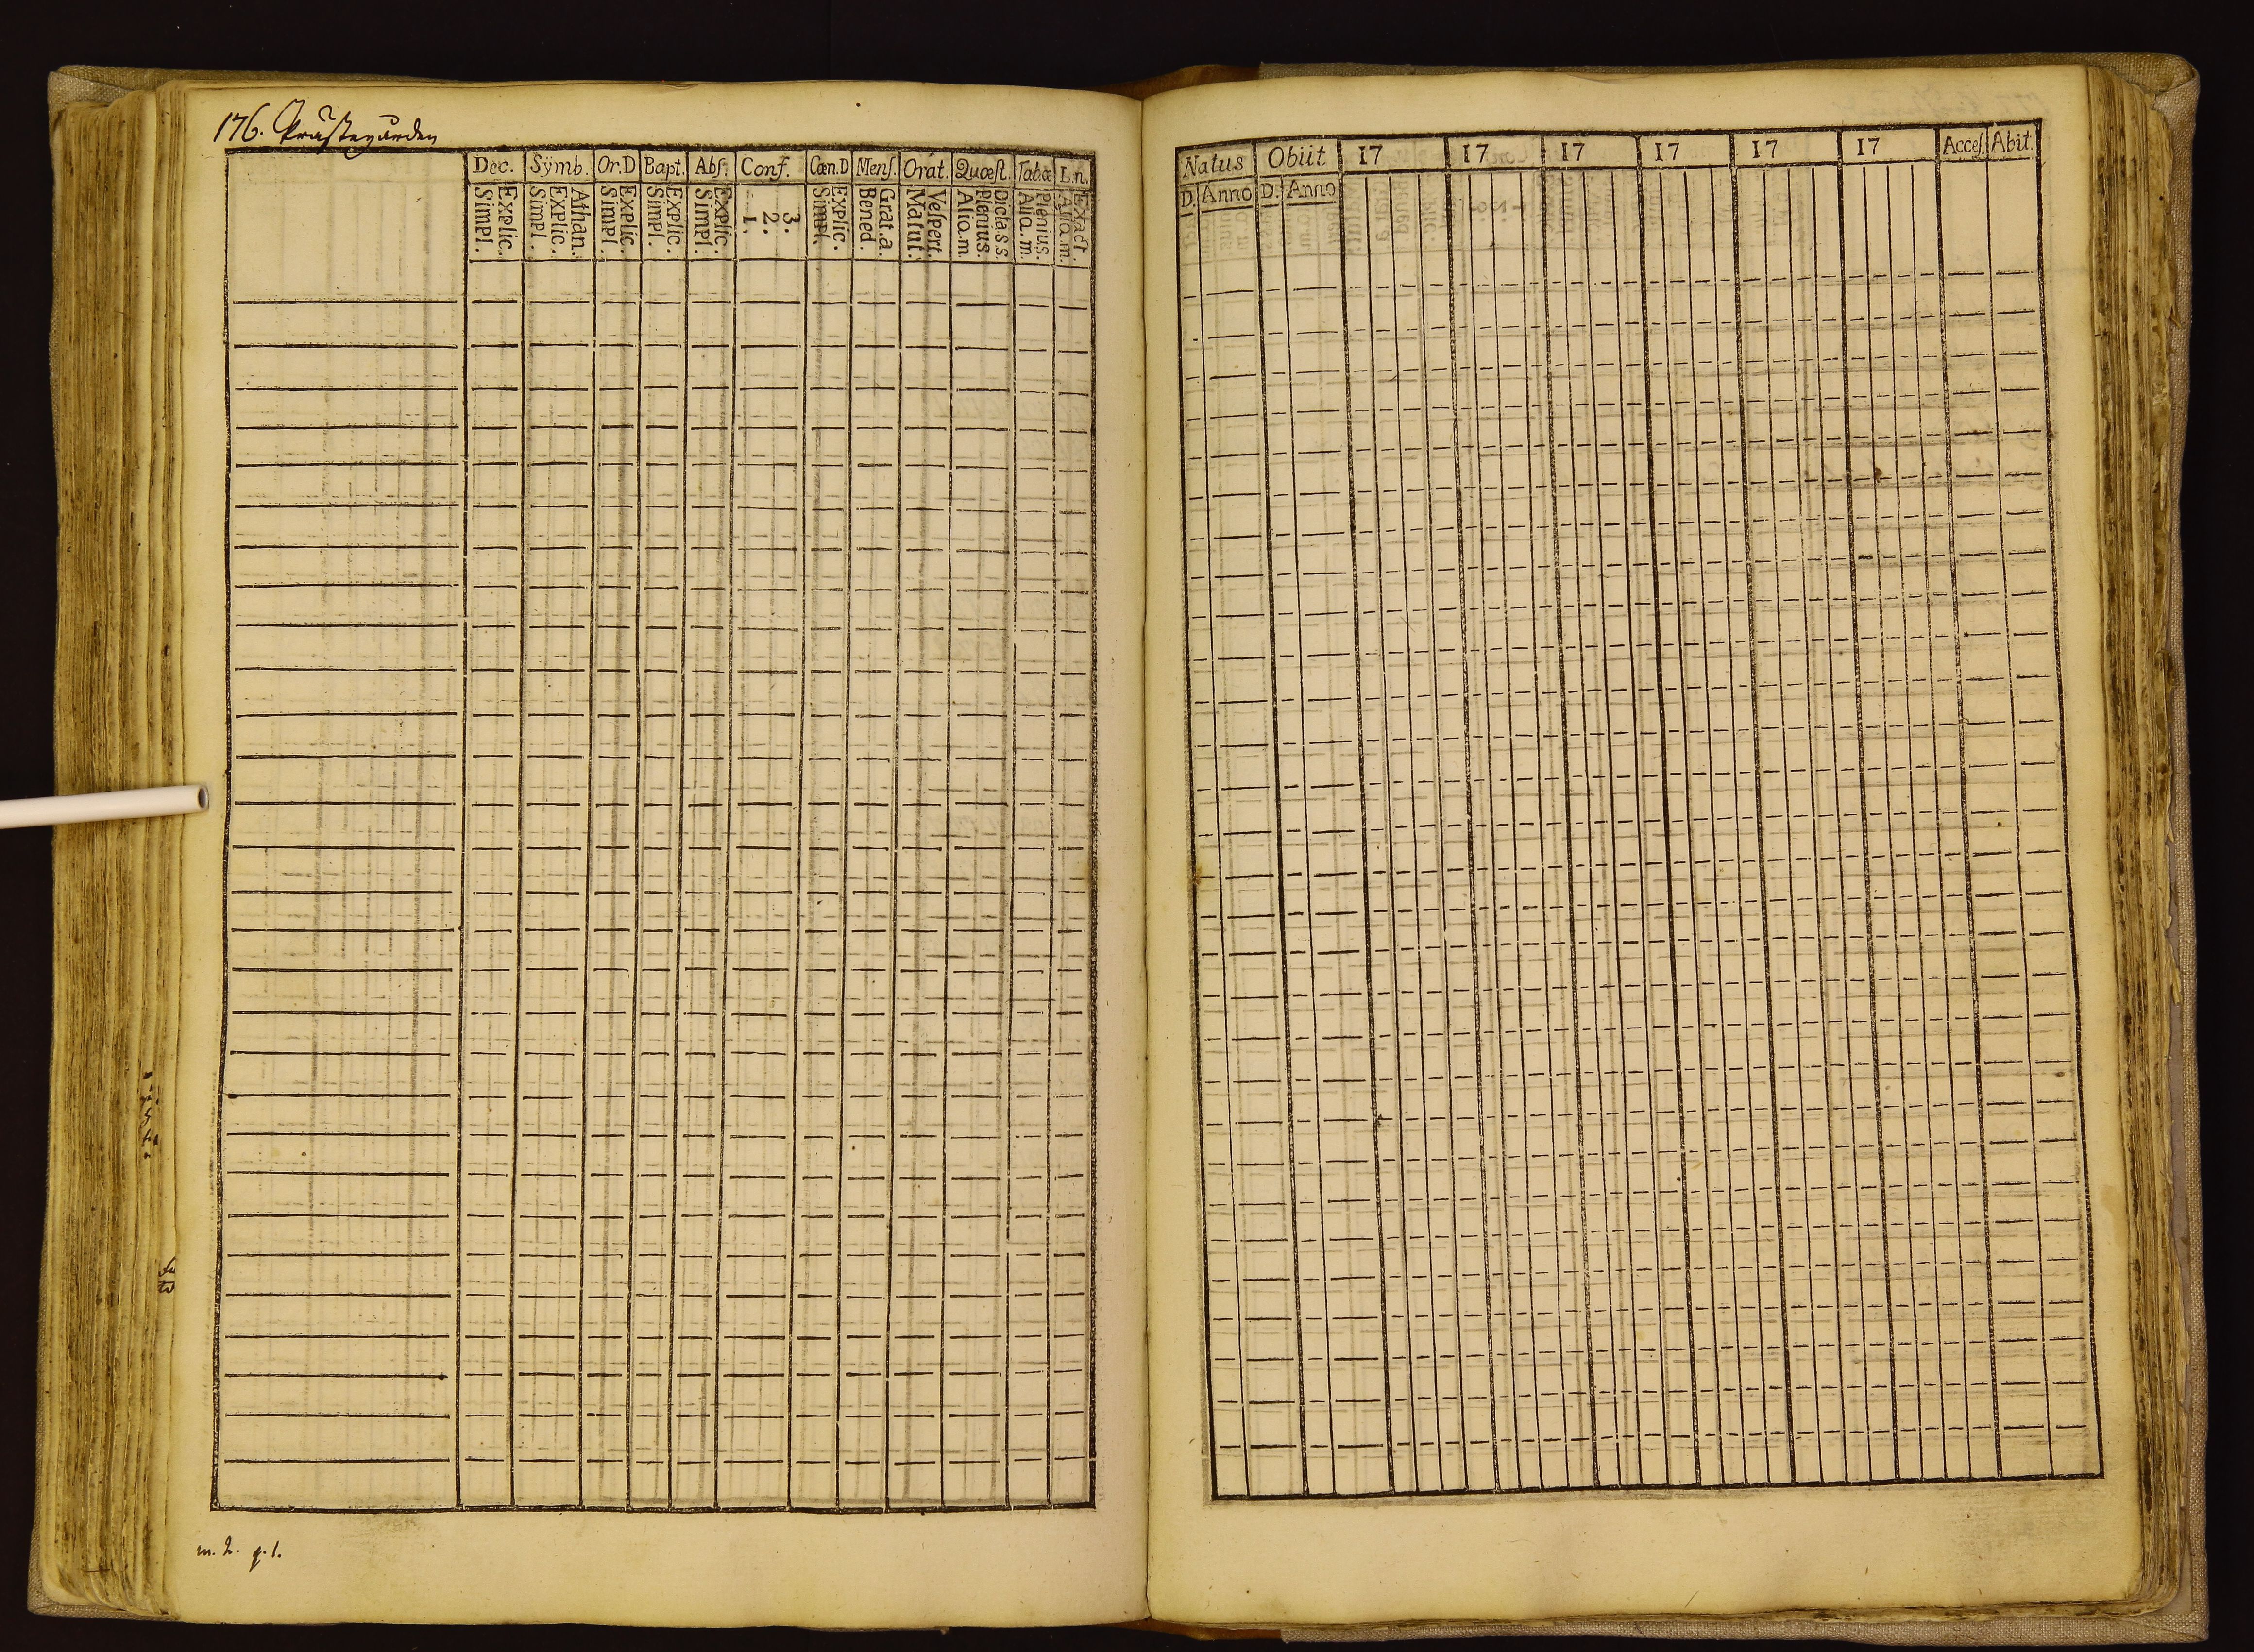 176. Prästegården
Dec. Sÿmb. Or.D Bapt. Abſ. Conf. Cœn.D Menſ. Orat. Quœſt. Tabœ L.n.
Explic. Simpl.
Athan. Explic. Simpl.
Explic. Simpl.
Explic. Simpl.
Explic. Simpl.
3. 2. 1.
Explic. Simpl.
Grat.a. Bened.
Veſpert. Matut.
Dicta.s.s. Plenius. Aliq.m.
Plenius. Aliq.m.
Exact. Aliq.m.
m. 2. q. 1.
Natus Obiit 17 17 17 17 17 17 Acceſ. Abit.
D. Anno D. Anno